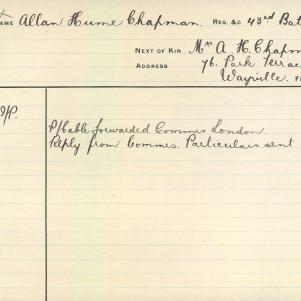 NAME Allan Hume Chapman. REG. &C 43rd Bat
NEXT OF KIN Mrs A. H. Chapm
ADDRESS 76. Park Terrac
Wayville.
P/Cable forwarded Commrs London.
Reply from Commrs. Particulars sent